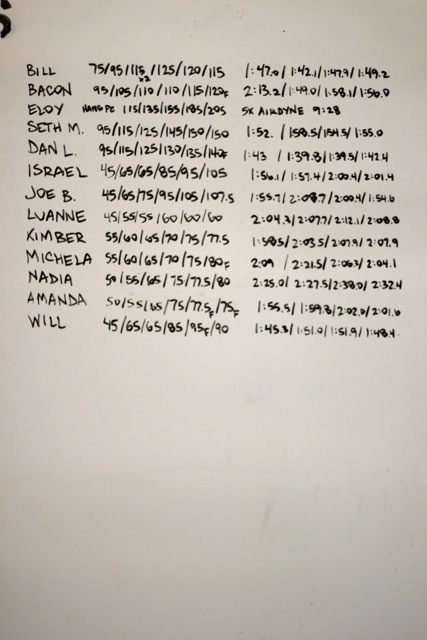 BILL 75/95/115 x2/125/120/115 1:47.0/1:42.1/1:47.9/1:49.2
BACON 95/105/110/110/115/120F 2:13.2/1:49.0/1:58.1/1:56.0
ELOY HANG PC 115/135/155/185/205 5X AIRDYNE 9:28
SETH M. 95/115/125/145/150/150 1:52./158.5/154.5/1:55.0
DAN L. 95/115/125/130/135/140F 1:43 /1:39.8/1:39.5/1:42.4
ISRAEL 45/65/65/85/95/105 1:56.1/1:57.4/2:00.4/2:01.4
JOE B. 45/65/75/95/105/107.5 1:55.7/2:08.7/2:00.4/1:54.6
LUANNE 45/55/55/60/60/60 2:04.3/2:07.7/2:12.1/2:08.8
KIMBER 55/60/65/70/75/77.5 1:58.5/2:03.5/2:07.9/2:07.9
MICHELA 55/60/65/70/75/80F 2:09 /2:21.5/2:06.3/2:04.1
NADIA 50/55/65/75/77.5/80 2:25.0/2:27.5/2:38.0/2:32.4
AMANDA 50/55/65/75/77.5F/75F 1:55.5/1:59.8/2:02.0/2:01.6
WILL 45/65/65/85/95F/90 1:45.3/1:51.0/1:51.9/1:48.4